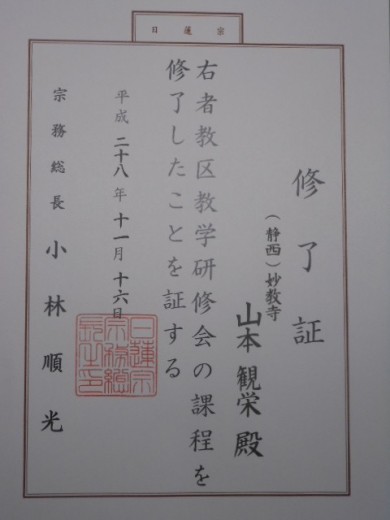 宗蓮日
修了証
（静西）妙教寺
山本観栄殿
右者教区教学研修会の課程を
修了したことを証する
平成二十八年十一月十六日
宗務総長　小林順光
日蓮宗
宗務總
長之印